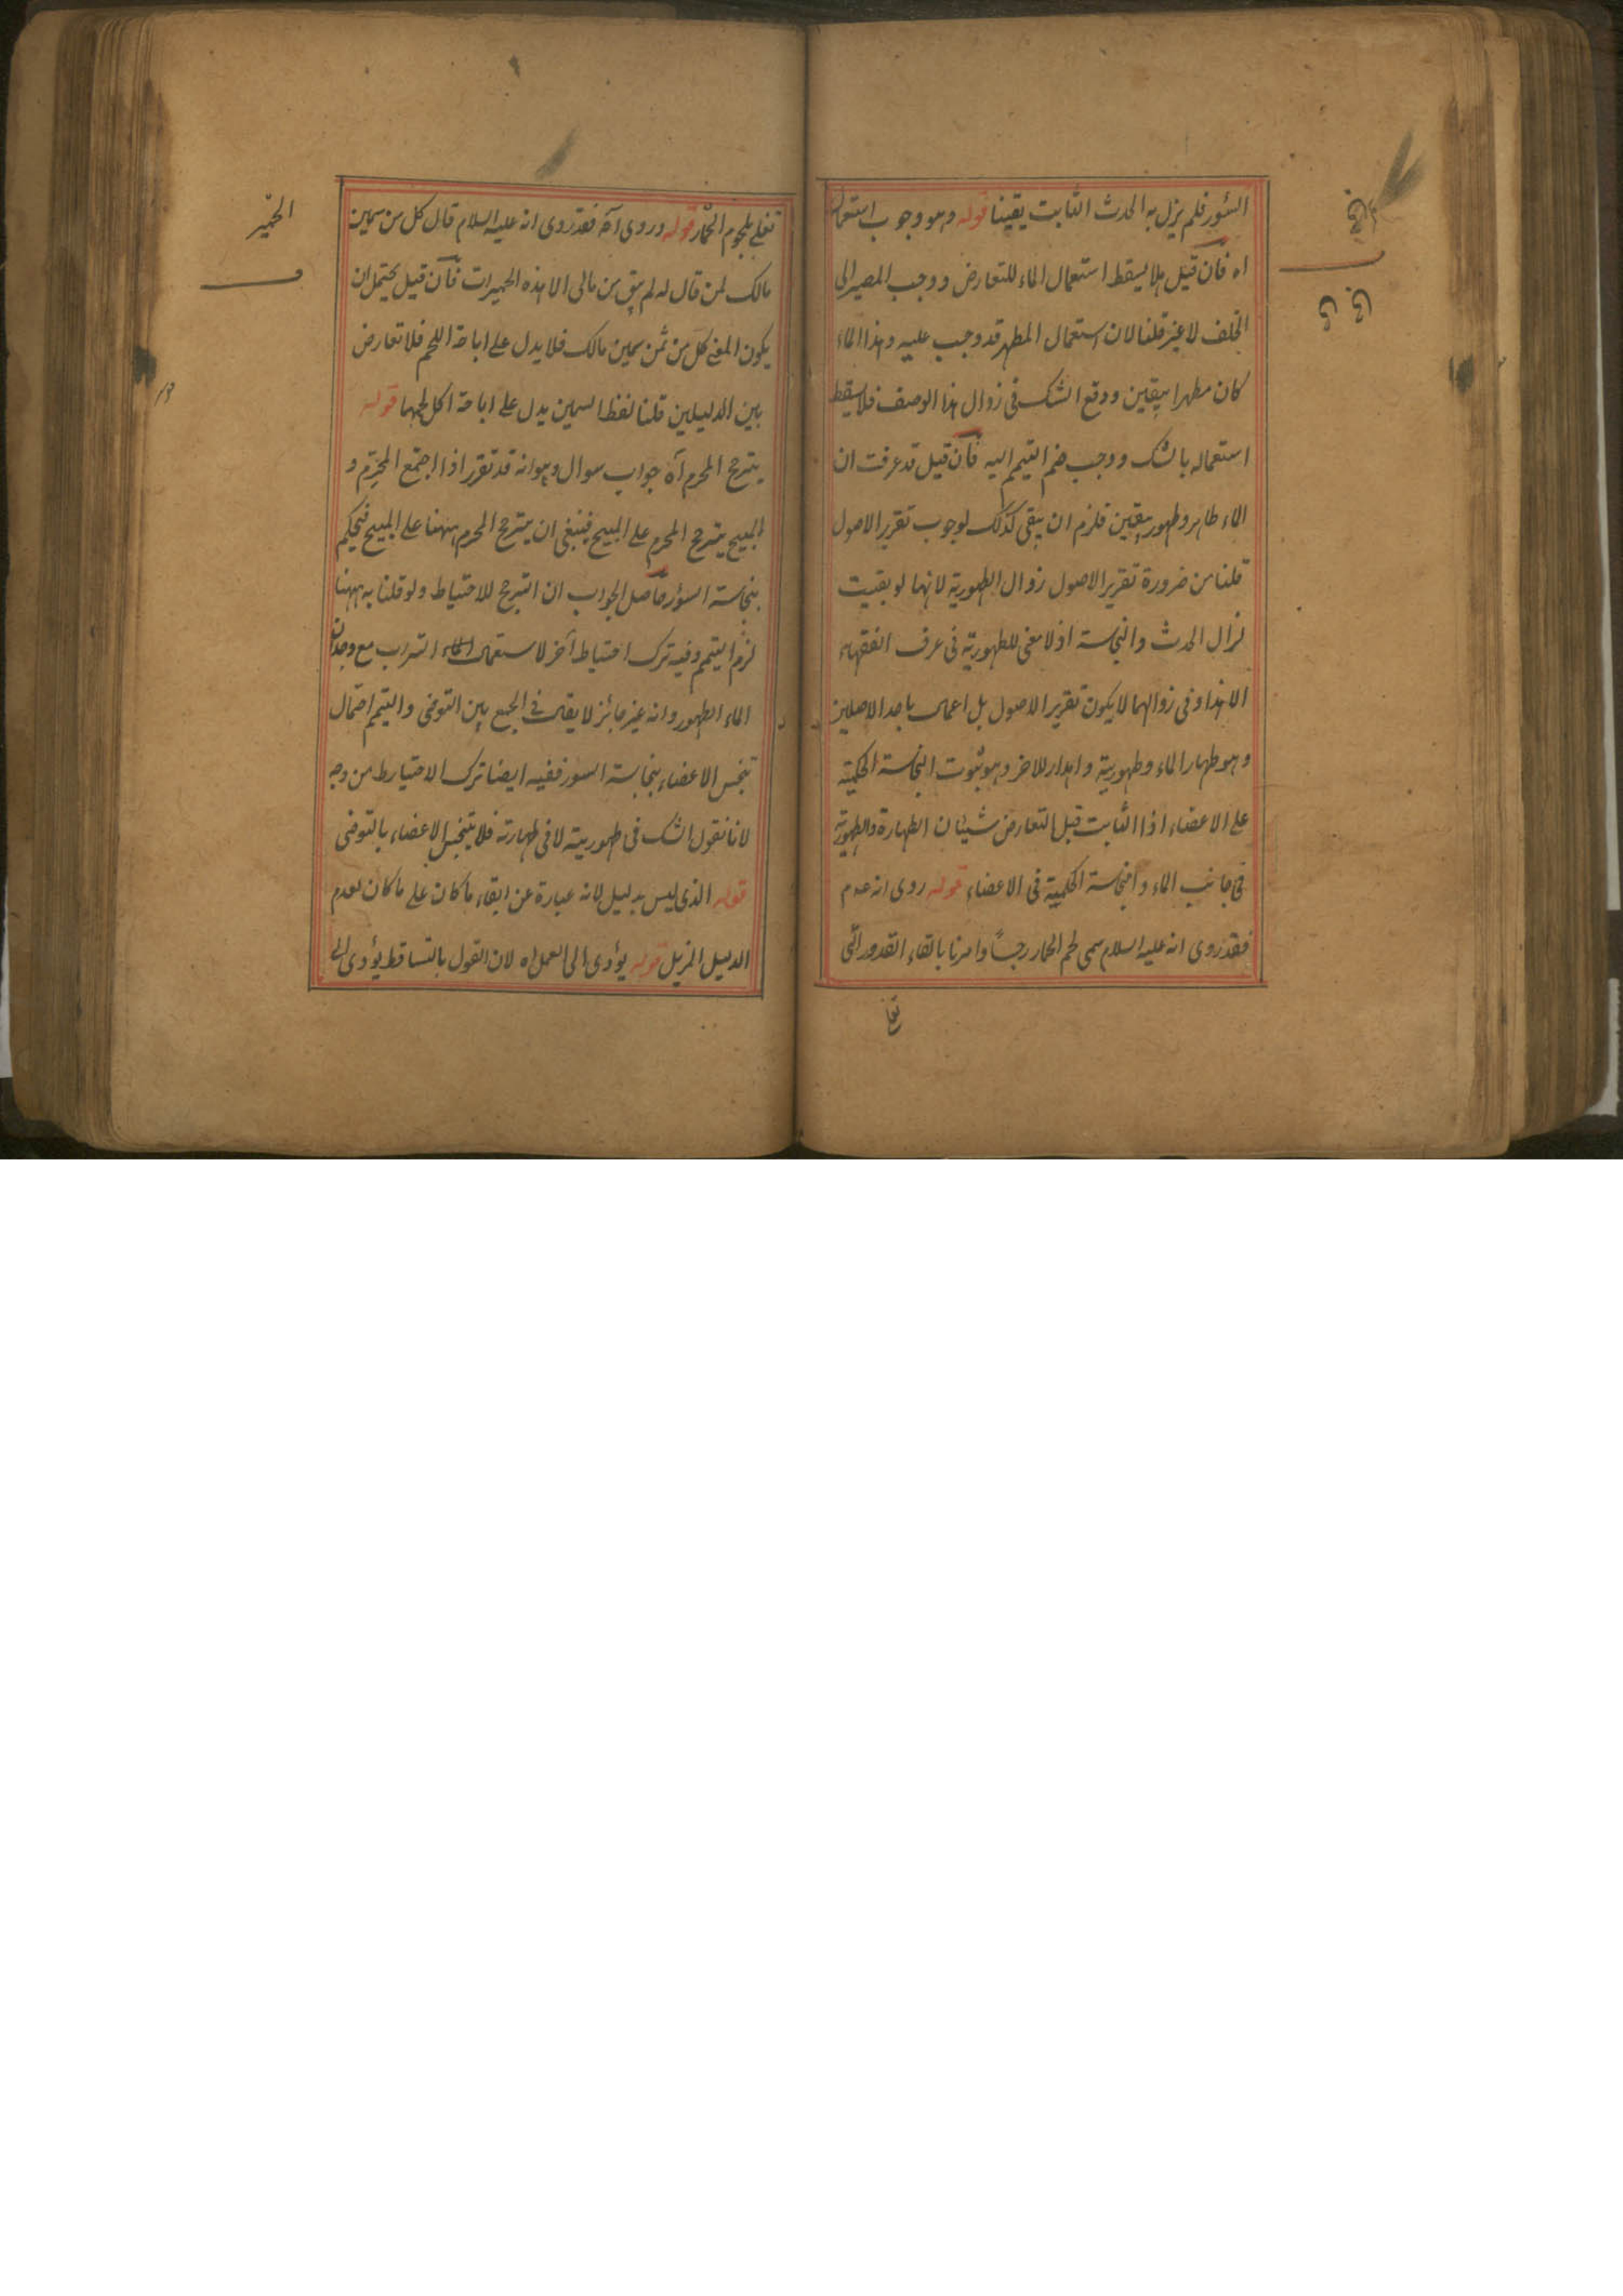 السؤر فلم يزل به الحدث الثابت يقينا قوله وهو وجوب استعمال
اه فان قيل هلا يسقط استعمال الماء للتعارض ووجب المصير الى
الخلف لا غير قلنا لان استعمال المطهر قد وجب عليه وهذا الماء
كان مطهرا بيقين ووقع الشك فى زوال هذا الوصف فلا يسقط
استعماله بالشك ووجب ضم التيمم اليه فان قيل قد عرفت ان
الماء طاهر وطهور بيقين فلزم ان يبقى كذلك لوجوب تقرير الاصول
قلنا من ضرورة تقرير الاصول زوال الطهورية لانها لو بقيت
لزال الحدث والنجاسة اذ لا معنى للطهورية فى عرف الفقهاء
الا هذا وفى زوالها لا يكون تقرير الاصول بل اعمال باحد الاصلين
وهو طهار الماء وطهوريته واهدار للاخر وهو ثبوت النجاسة الحكمية
على الاعضاء اذا الثابت قبل التعارض شيئان الطهارة والطهورية
فى جانب الماء والنجاسة الحكمية فى الاعضاء قوله روى انه عدم
فقد روى انه عليه السلام سمى لحم الحمار رجسًا وامرنا بالقاء القدور التى
تغلى بلحوم الحمار قوله وروى آه فقد روى انه عليه السلام قال كل من سمين
مالك لمن قال له لم يبق من مالى الا هذه الحميرات فان قيل يحتمل ان
يكون المعنى كل من ثمن سمين مالك فلا يدل على اباحة اللحم فلا تعارض
بين الدليلين قلنا لفظ السمين يدل على اباحة اكل لحمها قوله
يترجح المحرم آه جواب سوال وهو انه قد تقرر اذا اجتمع المحرم و
المبيح يترجح المحرم على المبيح فينبغى ان يترجح المحرم ههنا على المبيح فيحكم
بنجاسة السؤر حاصل الجواب ان الترجح للاحتياط ولو قلنا به ههنا
لزم التيمم وفيه ترك احتياط آخر لاستعمال الماء التراب مع وجدان
الماء الطهور وانه غير جائز لا يقال فى الجمع بين التوضى والتيمم احتمال
تنجس الاعضاء بنجاسة السور ففيه ايضا ترك الاحتياط من وجه
لانا نقول الشك فى طهوريته لا فى طهارته فلا يتنجس الاعضاء بالتوضى
قوله الذى ليس بدليل لانه عبارة عن ابقاء ما كان على ما كان لعدم
الدليل المزيل قوله يؤدى الى العمل اه لان القول بالتساقط يؤدى الى
الحمير